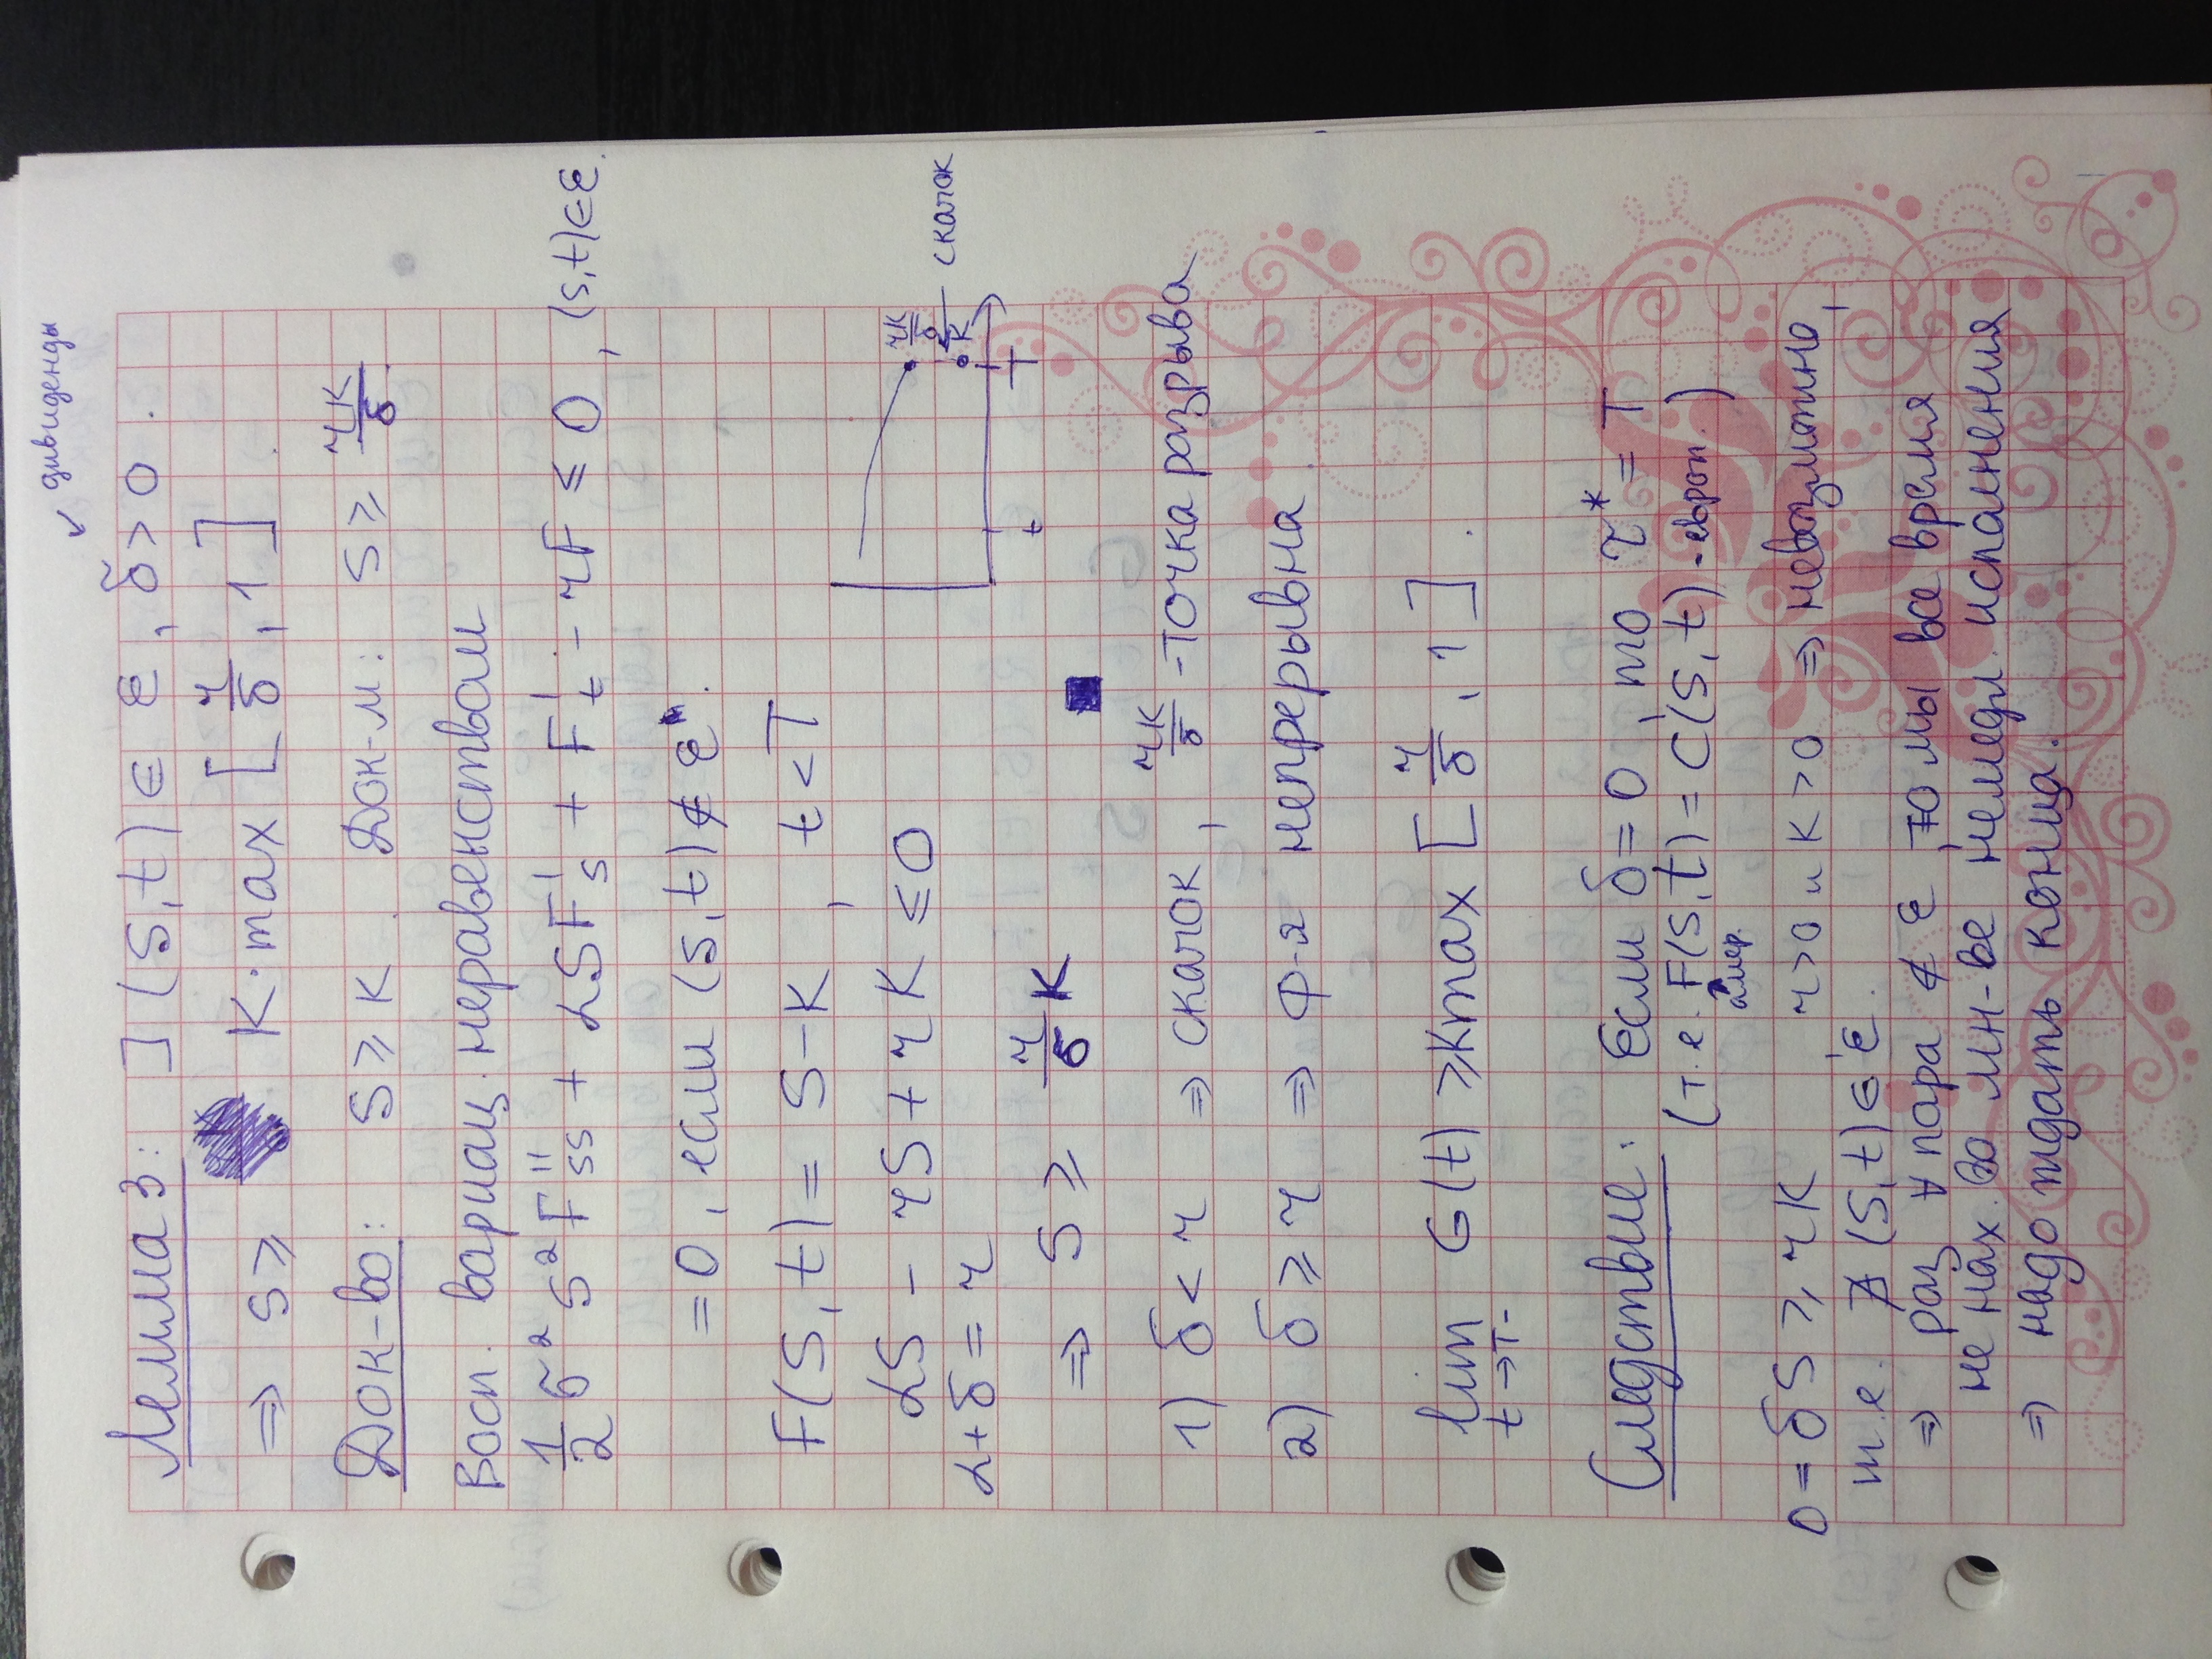 ↙ дивиденды
Лемма 3: ] (S,t) ∈ ℰ, δ > 0.
⇒ S ≥ K·max [r/δ, 1].
Док-во: S ≥ K. Док-м: S ≥ rK/δ.
Восп. вариац. неравенством
1/2 σ² S² F''ss + αSF's + F't - rF ≤ 0, (S,t) ∈ ℰ.
= 0, если (S,t) ∉ ℰ.
F(S,t) = S-K, t < T
αS - rS + rK ≤ 0
α+δ = r
⇒ S ≥ r/δ K
rK/δ
K
скачок
t T
1) δ < r ⇒ скачок, rK/δ - точка разрыва
2) δ ≥ r ⇒ ф-я непрерывна.
lim t→T- G(t) ≥ Kmax [r/δ, 1].
Следствие: Если δ = 0, то τ* = T
(т.е. F(S,t) = C(S,t) - европ.)
амер.
0 = δS ≥ rK r>0 и K>0 ⇒ невозможно,
т.е. ∄ (S,t) ∈ ℰ.
⇒ раз ∀ пара ∉ ℰ, то мы все время
не нах. во мн-ве немедл. исполнения
⇒ надо ждать конца.